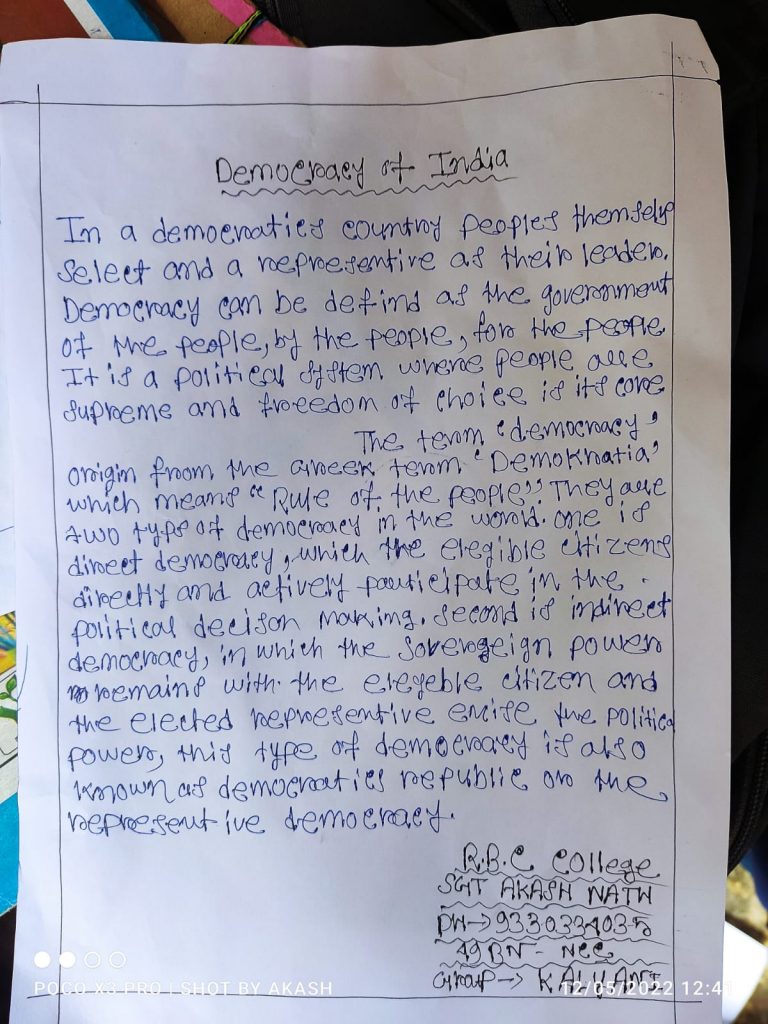 Democracy of India
In a democratics country peoples themselvs
select and a representive as their leader.
Democracy can be defind as the government
of the people, by the people, for the people
It is a political system where people are
supreme and freedom of choice is its core
The term 'democracy'
origin from the Greek term 'Demokratia'
which means "Rule of the people". They are
two type of democracy in the world. one is
direct democracy, which the elegible citizens
directly and actively participate in the
political decison making. second is indirect
democracy, in which the sovergeign power
remains with the elegeble citizen and
the elected representive excise the political
power, this type of democracy is also
known as democratics republic or the
representive democracy.
R.B.C College
SGT AKASH NATH
PH→9330334035
49 BN - NCC
Group → KALYANI
POCO X3 PRO | SHOT BY AKASH
12/05/2022 12:41